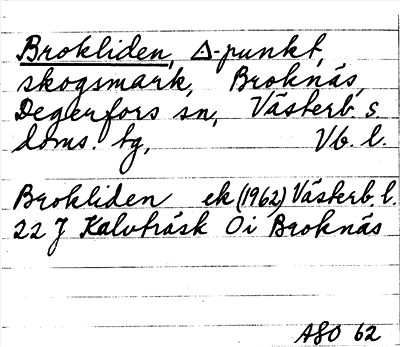 Brokliden, △-punkt,
skogsmark, Broknäs,
Degerfors sn, Västerb. s.
doms. tg, Vb. l.
Brokliden ek (1962) Västerb. l.
22 J Kalvträsk 0i Broknäs
ASO 62